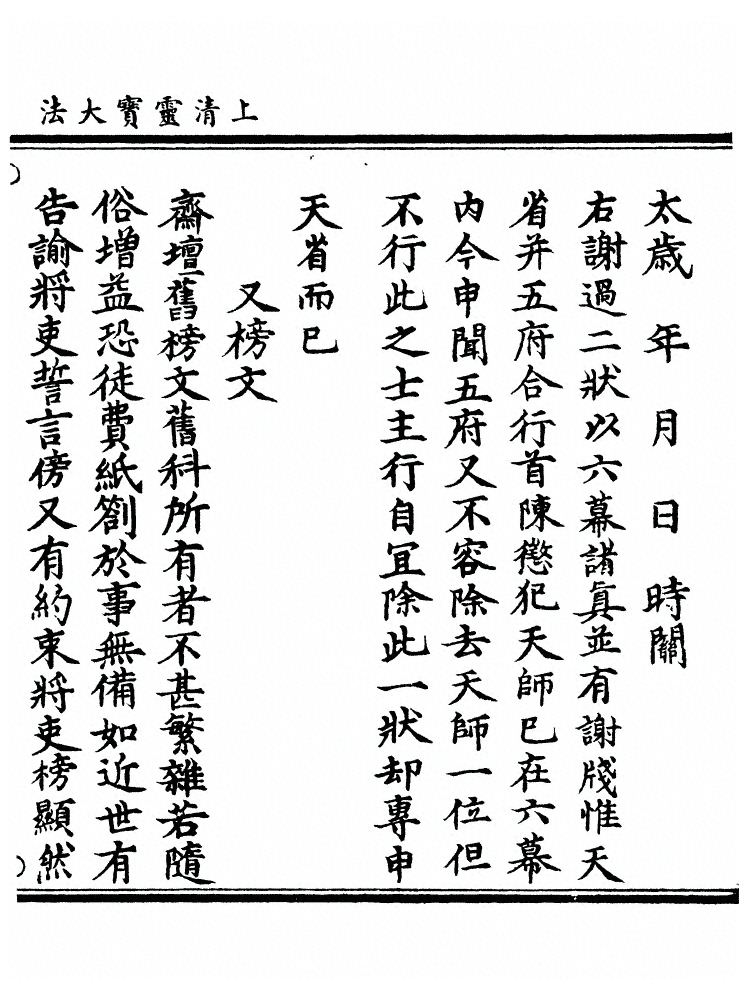 上清靈寶大法
太歲 年 月 日 時關
右謝過二狀以六幕諸眞並有謝牋惟天
省并五府合行首陳愆犯天師已在六幕
內今申聞五府又不容除去天師一位但
不行此之士主行自冝除此一狀却專申
天省而已
又榜文
齋壇舊榜文舊科所有者不甚繁雜若隨
俗增益恐徒費紙劄於事無備如近世有
告諭將吏誓言傍又有約束將吏榜顯然